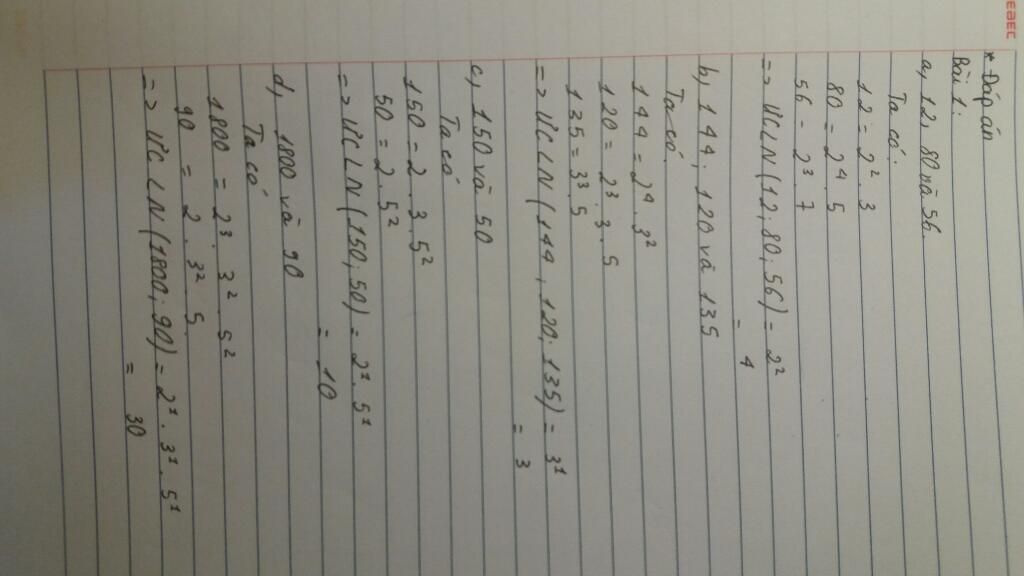 EBEC
* Đáp án
Bài 1:
a, 12, 80 và 56.
Ta có:
12 = 2² . 3
80 = 2⁴ . 5
56 = 2³ . 7
=> ƯCLN (12, 80, 56) = 2²
= 4
b, 144, 120 và 135
Ta có
144 = 2⁴ . 3²
120 = 2³ . 3 . 5
135 = 3³ . 5
=> ƯCLN (144, 120, 135) = 3¹
= 3
c, 150 và 50
Ta có
150 = 2 . 3 . 5²
50 = 2 . 5²
=> ƯCLN (150, 50) = 2¹ . 5¹
= 10
d, 1800 và 90
Ta có
1800 = 2³ . 3² . 5²
90 = 2 . 3² . 5
=> ƯCLN (1800, 90) = 2¹ . 3¹ . 5¹
= 30